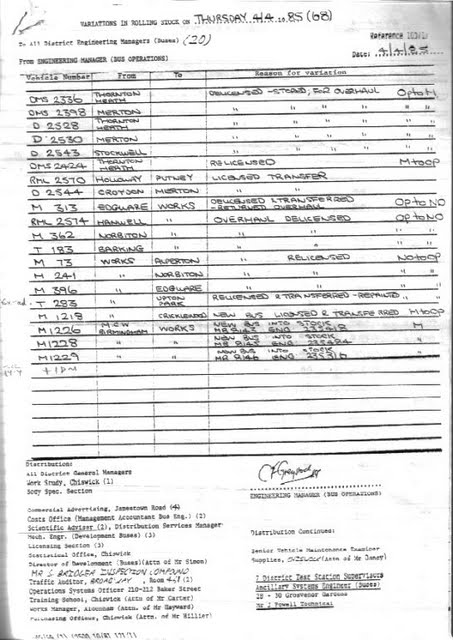 VARIATIONS IN ROLLING STOCK ON THURSDAY 4/4 1985 (68)
To All District Engineering Managers (Buses) (20)
Reference
From ENGINEERING MANAGER (BUS OPERATIONS)
Date: 4/4/85
Vehicle Number From To Reason for variation
DMS 2336 THORNTON HEATH DELICENSED - STORED, FOR OVERHAUL Op to M
DMS 2398 MERTON " " " " "
D 2528 THORNTON HEATH " " " "
D 2530 MERTON " " " "
D 2543 STOCKWELL " " " "
DMS 2424 THORNTON HEATH RELICENSED M to OP
RML 2570 HOLLOWAY PUTNEY LICENSED TRANSFER
D 2544 CROYDON MERTON " "
M 313 EDGWARE WORKS DELICENSED & TRANSFERRED - OVERHAUL Op to NO
RML 2574 HANWELL " OVERHAUL DELICENSED Op to NO
M 362 NORBITON " " " "
T 183 BARKING " " "
M 73 WORKS ALPERTON " RELICENSED NO to OP
M 241 " NORBITON " " "
M 396 " EDGWARE " " "
T 283 " UPTON PARK RELICENSED & TRANSFERRED - REPAINTED "
M 1218 " CRICKLEWOOD NEW BUS LICENSED & TRANSFERRED M to OP
M 1226 M.C.W BIRMINGHAM WORKS NEW BUS INTO STOCK M
M 1228 " " NEW BUS INTO STOCK "
M 1229 " " NEW BUS INTO STOCK "
Distribution:
All District General Managers
Work Study, Chiswick (1)
Body Spec. Section
ENGINEERING MANAGER (BUS OPERATIONS)
Commercial Advertising, Jamestown Road
Costs Office (Management Accountant Bus Eng.) (2)
Scientific Adviser (2), Distribution Services Manager
Mech. Engr. (Development Buses) (3)
Licensing Section (3)
Statistical Office, Chiswick
Director of Development (Buses)(Attn of Mr Simon)
INSPECTION COMPOUND
Traffic Auditor, BROADWAY, Room
Operations Systems Officer 210-212 Baker Street
Training School, Chiswick (Attn of Mr Carter)
Works Manager, Aldenham (Attn of Mr Hayward)
Purchasing Officer, Chiswick (Attn of Mr Hillier)
Distribution Continued:
Senior Vehicle Maintenance Examiner
Supplies, CHISWICK (Attn of Mr Dancy)
7 District Test Station Supervisors
Ancillary Systems Engineer (Buses)
28 - 30 Grosvenor Gardens
Mr J Powell Technical